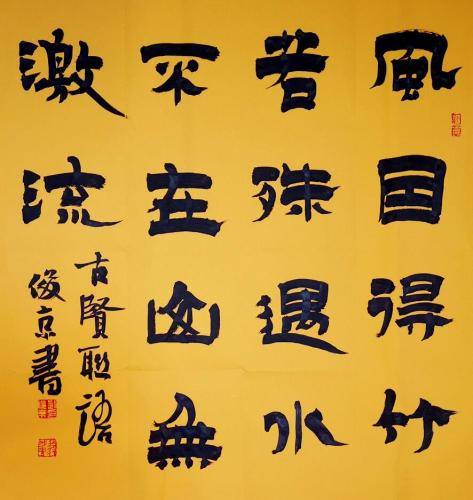 風因得竹
若殊遇水
不在山無
激流
古賢聯語
俊京書